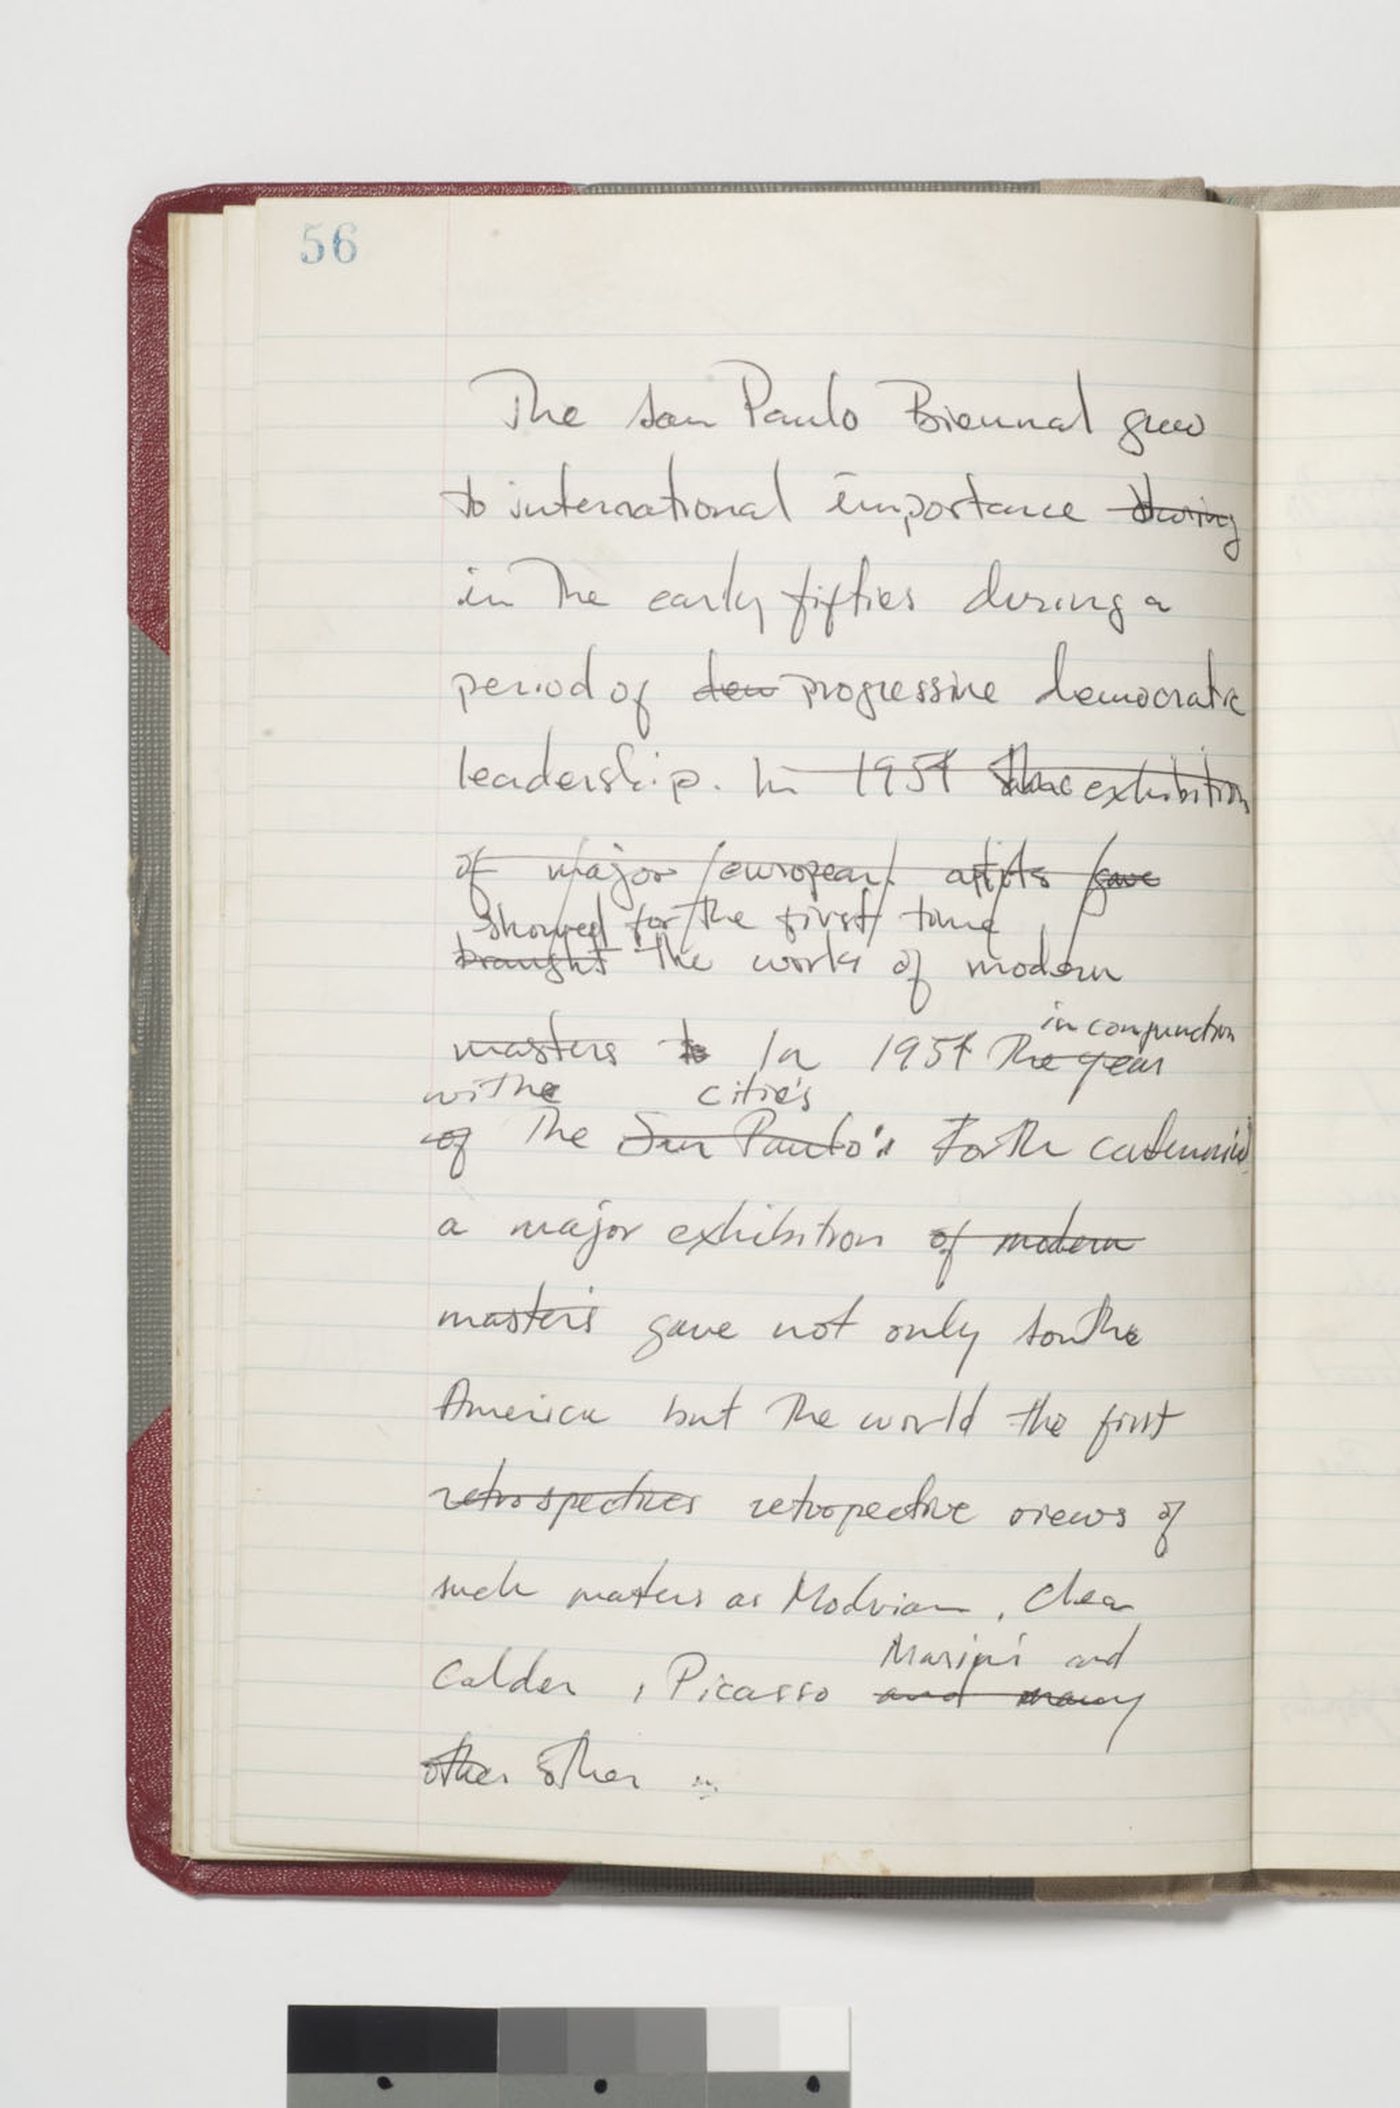 56
The san Paulo Biennal grew
to international importance during
in The early fifties during a
period of dem progressive democratic
leadership. In 1954 exhibition
of major european artists gave
showed for the first time
brought the works of modern
masters to In 1954 The year
in conjunction
withe cities
of The San Paulo's Forth
a major exhibition of modern
masters gave not only southe
America but The world the first
retrospectives retropective views of
such masters as Modrian,
Calder, Picasso and many
Marini and
other other ...